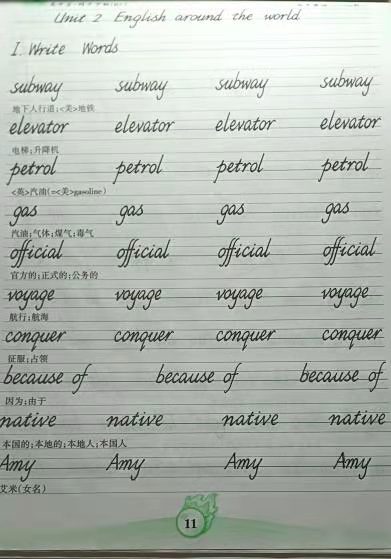 Unit 2 English around the world
I. Write Words
subway subway subway subway
地下人行道;<美>地铁
elevator elevator elevator elevator
电梯;升降机
petrol petrol petrol petrol
<英>汽油(=<美>gasoline)
gas gas gas gas
汽油;气体;煤气;毒气
official official official official
官方的;正式的;公务的
voyage voyage voyage voyage
航行;航海
conquer conquer conquer conquer
征服;占领
because of because of because of
因为;由于
native native native native
本国的;本地的;本地人;本国人
Amy Amy Amy Amy
艾米(女名)
11